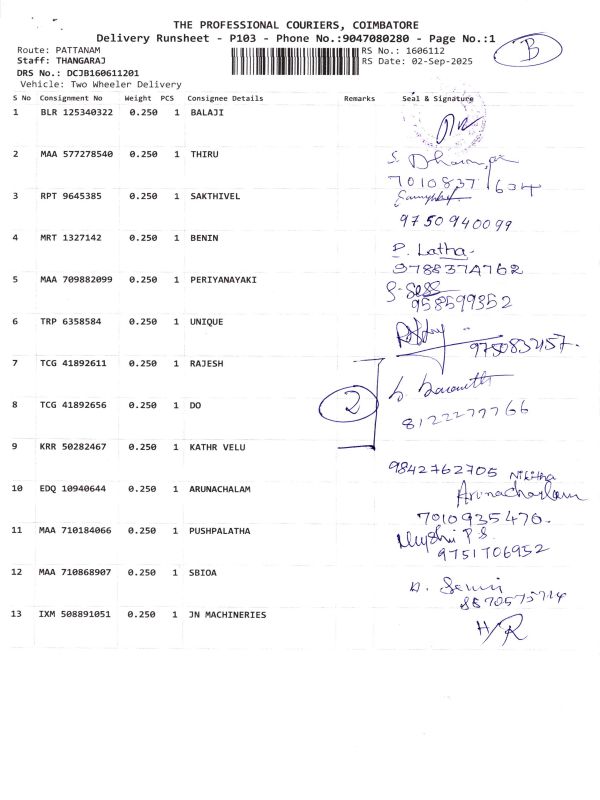 THE PROFESSIONAL COURIERS, COIMBATORE
Delivery Runsheet - P103 - Phone No.:9047080280 - Page No.:1
B
Route: PATTANAM RS No.: 1606112
Staff: THANGARAJ RS Date: 02-Sep-2025
DRS No.: DCJB160611201
Vehicle: Two Wheeler Delivery
S No Consignment No Weight PCS Consignee Details Remarks Seal & Signature
1 BLR 125340322 0.250 1 BALAJI
2 MAA 577278540 0.250 1 THIRU
7010837 634
3 RPT 9645385 0.250 1 SAKTHIVEL
9750940099
4 MRT 1327142 0.250 1 BENIN P. Latha
9788374762
5 MAA 709882099 0.250 1 PERIYANAYAKI
958599352
6 TRP 6358584 0.250 1 UNIQUE
9750832157.
7 TCG 41892611 0.250 1 RAJESH
2
8 TCG 41892656 0.250 1 DO
8122277766
9 KRR 50282467 0.250 1 KATHR VELU
9842762705 Nikitha
10 EDQ 10940644 0.250 1 ARUNACHALAM Arunachalam
7010935476.
11 MAA 710184066 0.250 1 PUSHPALATHA
9751706952
12 MAA 710868907 0.250 1 SBIOA
8870575714
13 IXM 508891051 0.250 1 JN MACHINERIES H/R